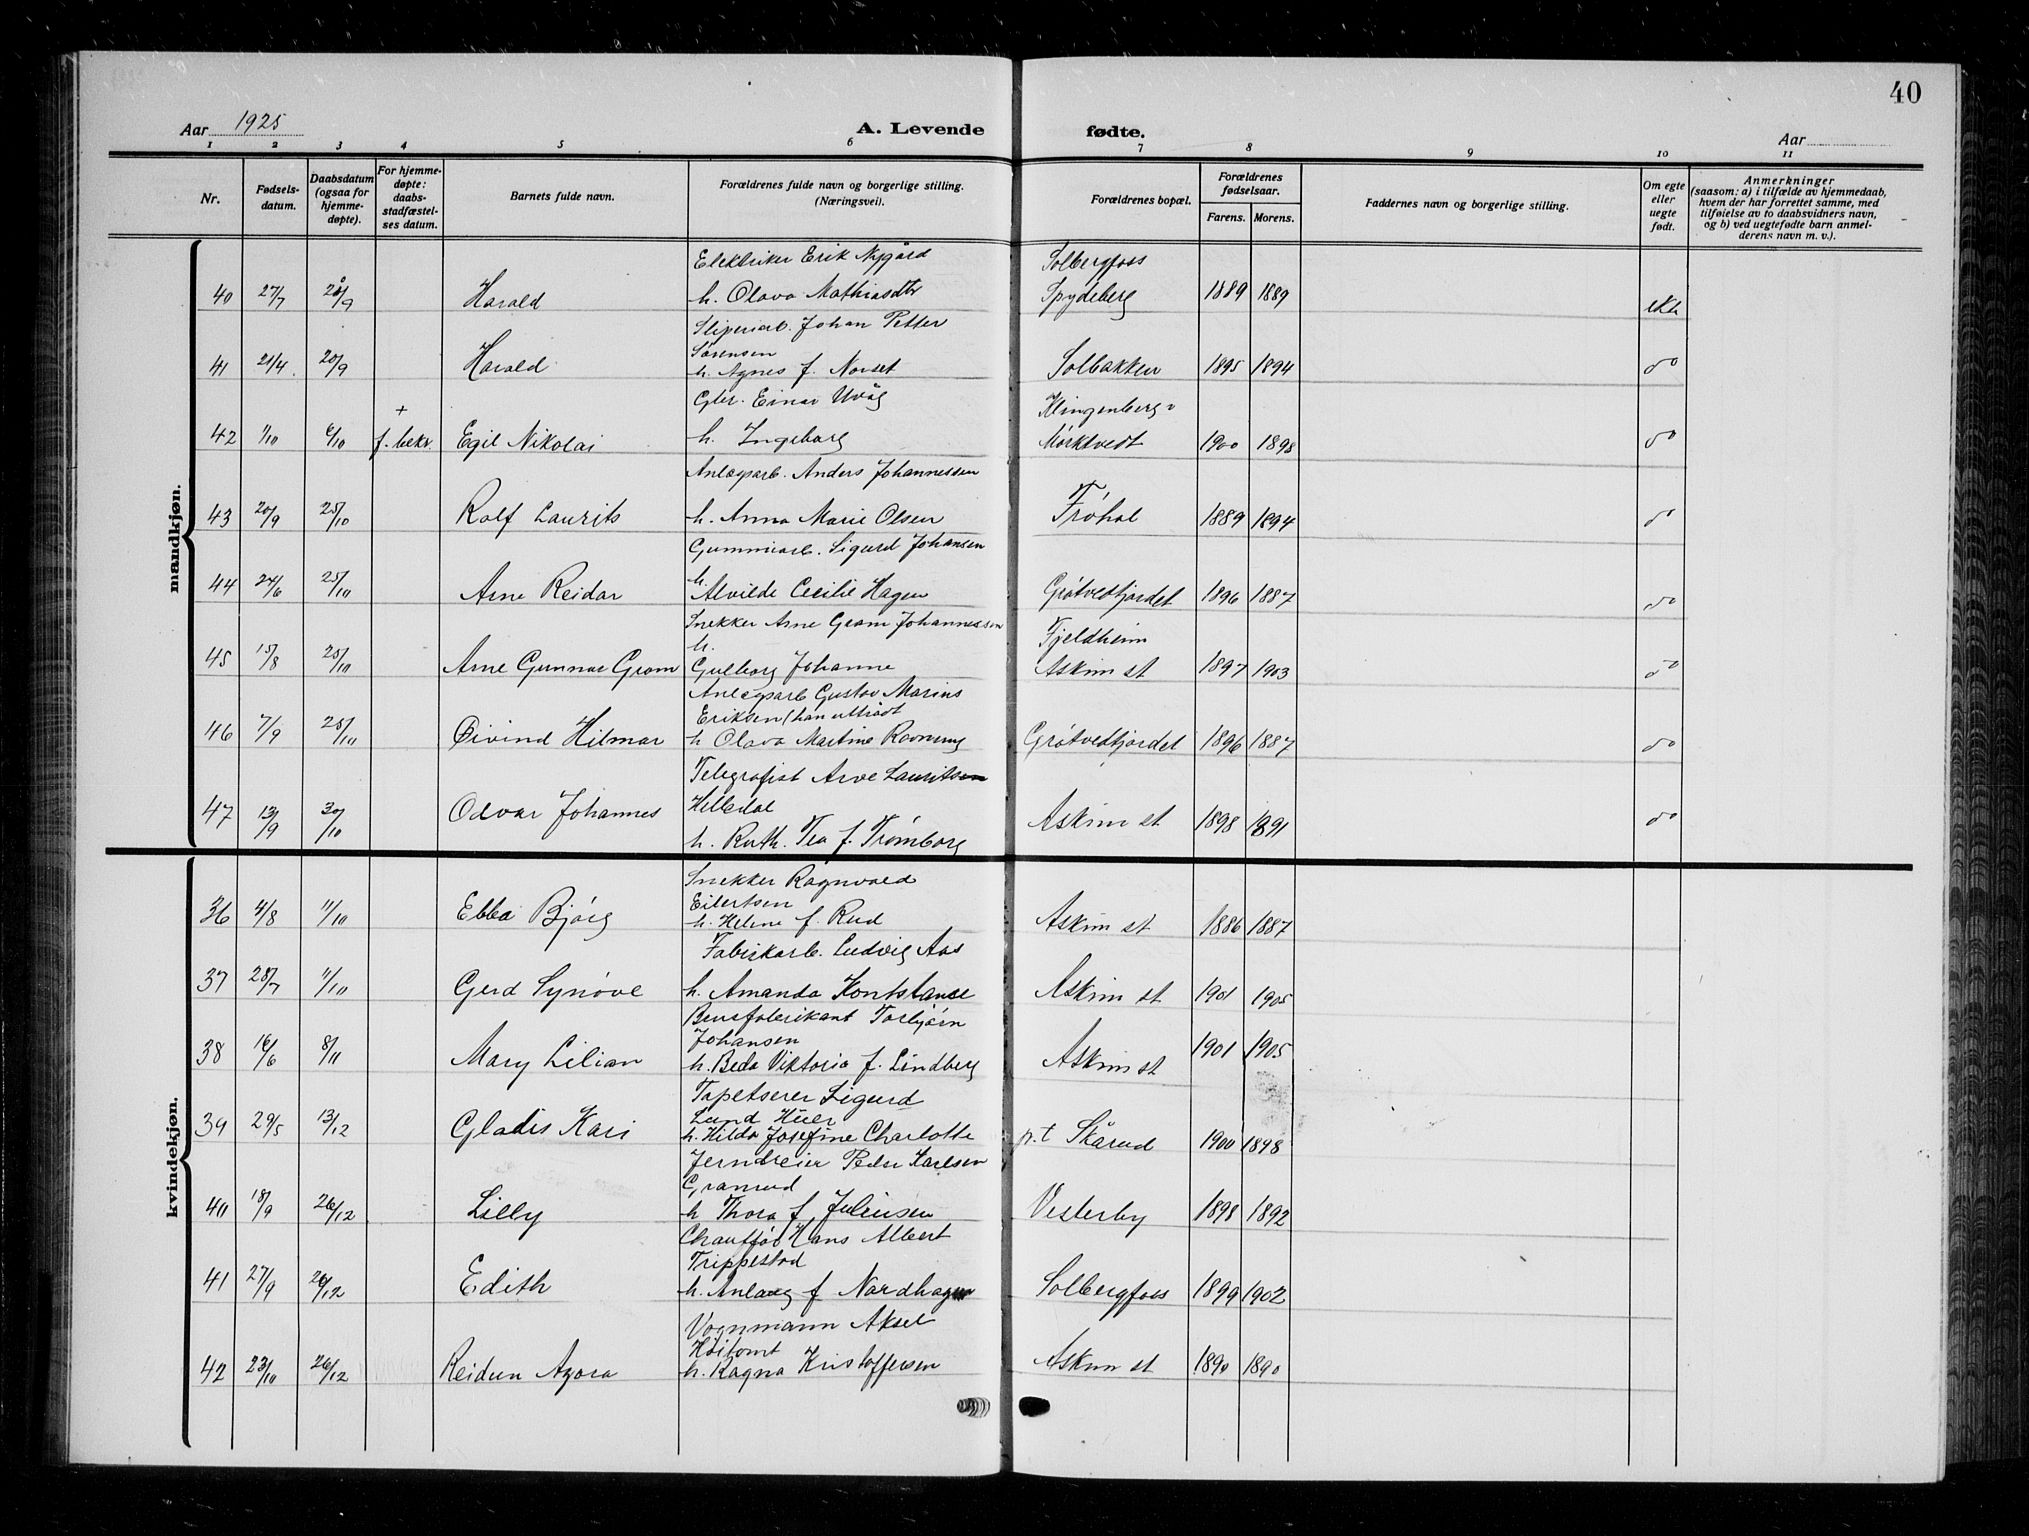 40
Aar 1925
A. Levende fødte.
Aar
1 2 3 4 5 6 7 8 9 10 11
Nr.
Fødsels-
datum.
Daabsdatum
(ogsaa for
hjemme-
døpte).
For hjemme-
døpte:
daabs-
stadfæstel-
ses datum.
Barnets fulde navn.
Forældrenes fulde navn og borgerlige stilling.
(Næringsvei).
Forældrenes bopæl.
Forældrenes
fødselsaar.
Farens. Morens.
Faddernes navn og borgerlige stilling.
Om egte
eller
uegte
født.
Anmerkninger
(saasom: a) i tilfælde av hjemmedaab,
hvem der har forrettet samme, med
tilføielse av to daabsvidners navn,
og b) ved uegtefødte barn anmel-
derens navn m. v.).
mandkjøn.
Elektriker Erik Nygård Solbergfoss
40 27/7 20/9 Harald h. Olava Mathiasdtr Spydeberg 1889 1889 ekte
Sliperiarb. Johan Petter
Sørensen
41 21/4 20/9 Harald h. Agnes f. Norset Solbakken 1895 1894 do
Gbr. Einar Uvåg Klingenberg
+
42 1/10 6/10 f. bekr. Egil Nikolai h. Ingeborg Mørktvedt 1900 1898 do
Anlægsarb. Anders Johannessen
43 20/9 25/10 Rolf Laurits h. Anna Marie Olsen Frøhol 1889 1894 do
Gummiarb. Sigurd Johansen
h.
44 24/6 25/10 Arne Reidar Alvilde Cecilie Hagen Grøtvedtjordet 1896 1887 do
Snekker Arne Gram Johannessen Fjeldheim
h.
45 15/8 25/10 Arne Gunnar Gram Gulborg Johanne Askim st 1897 1903 do
Anlægsarb Gustav Marius
Eriksen (han uttrådt
46 7/9 25/10 Øivind Hilmar h Olava Martine Ravnung Grøtvedtjordet 1896 1887 do
Telegrafist Arve Lauritsen
Helledal
47 13/9 30/10 Odvar Johannes h. Ruth. Tea f. Trømborg Askim st 1898 1891 do
kvindekjøn.
Snekker Ragnvald
Eilertsen
36 4/8 11/10 Ebba Bjørg h. Helene f. Rud Askim st 1886 1887
Fabrikarb. Ludvig Aas
37 28/7 11/10 Gerd Synøve h. Amanda Kontstanse Askim st 1901 1905
Brusfabrikant Torbjørn
Johansen
38 16/6 8/11 Mary Lilian h. Beda Viktoria f. Lindberg Askim st 1901 1905
Tapetserer Sigurd
Lund Huer
39 29/5 13/12 Gladis Kari h. Hilda Josefine Charlotte p.t Skårud 1900 1898
Jerndreier Peder Karlsen
Granrud
40 18/9 26/12 Lilly h Thora f. Juliussen Vesterby 1898 1892
Chauffør Hans Albert
Trippestad
41 27/9 26/12 Edith h. Anlaug f Nordhagen Solbergfoss 1899 1902
Vognmann Aksel
Høitomt
42 23/10 26/12 Reidun Azora h. Ragna Kristoffersen Askim st 1890 1890